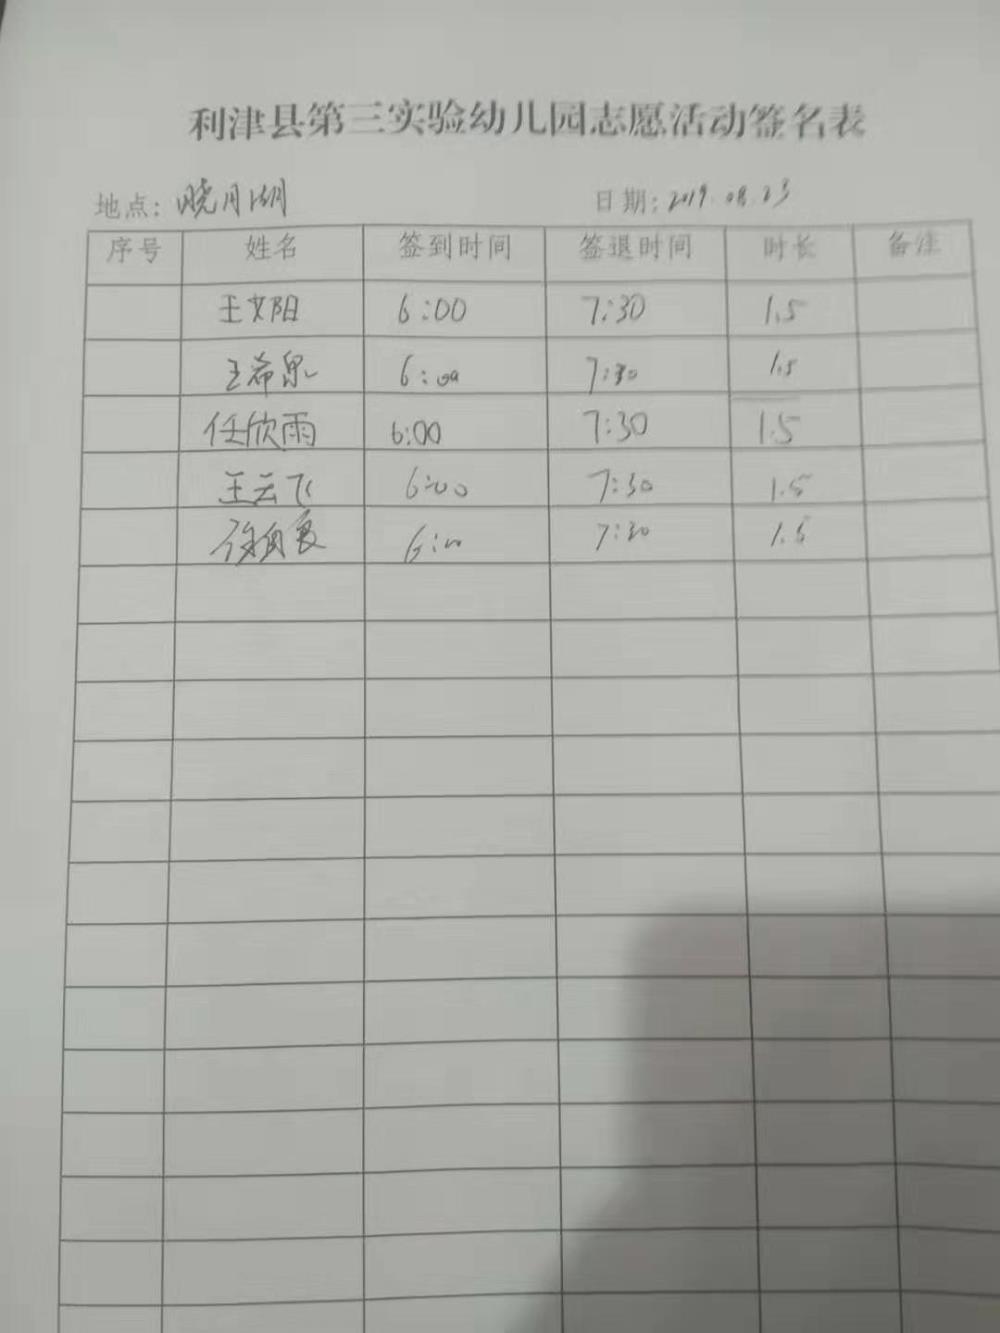 利津县第三实验幼儿园志愿活动签名表
地点：晓月湖 日期：2019.08.23
序号 姓名 签到时间 签退时间 时长 备注
王文阳 6:00 7:30 1.5
王希泉 6:00 7:30 1.5
任欣雨 6:00 7:30 1.5
王云飞 6:00 7:30 1.5
6:00 7:30 1.5